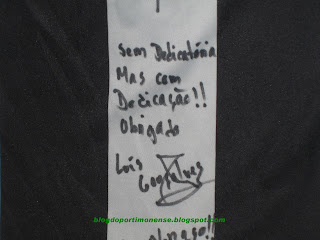 Sem Dedicatória
Mas com
Dedicação!!
Obrigado
Luís
Gonçalves
blogdoportimonense.blogspot.com
Abraço!!